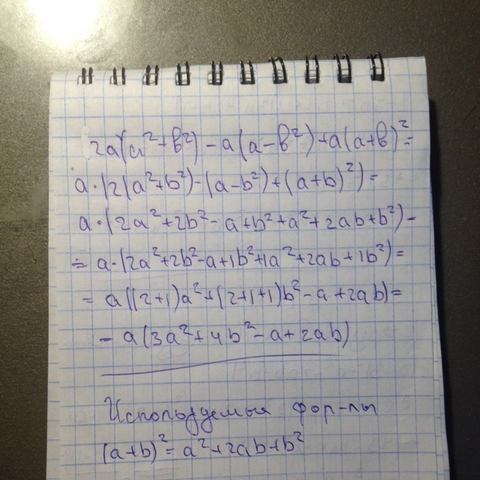 2a(a²+b²)-a(a-b²)+a(a+b)²=
a·(2(a²+b²)-(a-b²)+(a+b)²)=
a·(2a²+2b²-a+b²+a²+2ab+b²)-
= a·(2a²+2b²-a+1b²+1a²+2ab+1b²)=
= a((2+1)a²+(2+1+1)b²-a+2ab)=
- a(3a²+4b²-a+2ab)
Используемыя фор-лы
(a+b)²=a²+2ab+b²